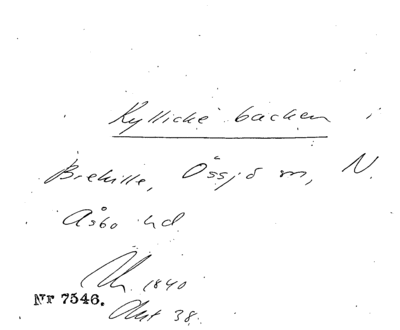 Kyllicke backen i
Brehille, Össjö m, N.
Åsbo hd.
1840
Nr 7546.
Akt 38.